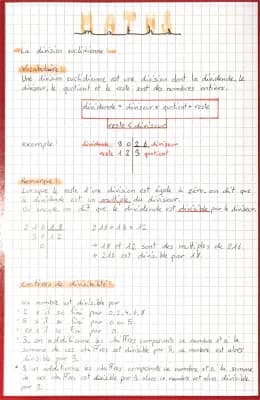 maths
La division euclidienne
Vocabulaire :
Une division euclidienne est une division dont la dividende, le
diviseur, le quotient et le reste sont des nombres entiers.
dividende = diviseur × quotient + reste
reste < diviseur
exemple : dividende diviseur
reste 1 2 5 quotient
Remarque :
Lorsque le reste d'une division est égale à zéro, on dit que
le dividende est un multiple du diviseur.
Ou encore on dit que le dividende est divisible par le diviseur.
2 1 6 1 8 216 = 18 × 12
3 6 1 2
0 → 18 et 12 sont des 216
→ 216 est divisible par 18.
Critères de divisibilité :
Un nombre est divisible par
2 s'il se fini par 0, 2, 4, 6, 8
5 s'il se fini par 0 ou 5.
10 s'il se fini par 0.
3, on additionne les chiffres composants ce nombre et si la
somme de ces chiffres est divisible par 3, ce nombre est alors
divisible par 3.
9, on additionne les chiffres composants ce nombre et si la somme
de ces chiffres est divisible par 9 alors ce nombre est alors divisible
par 9.